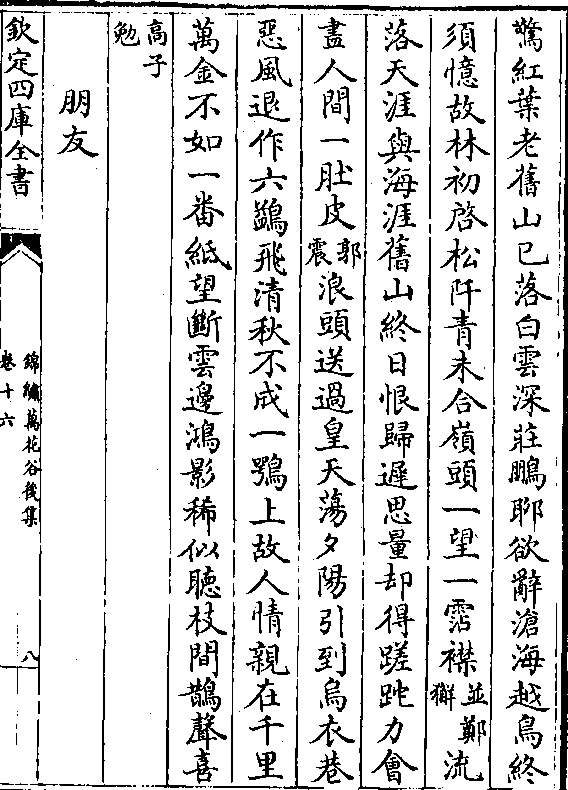 驚紅葉老舊山已落白雲深莊鵬聊欲辭滄海越鳥終
須憶故林初啓松阡青未合嶺頭一望一霑襟並鄭獬流
落天涯與海涯舊山終日恨歸遲思量却得蹉跎力會
盡人間一肚皮郭震浪頭送過皇天蕩夕陽引到烏衣巷
惡風退作六鷁飛清秋不成一鶚上故人情親在千里
萬金不如一番紙望斷雲邊鴻影稀似聽枝間鵲聲喜
高子勉
朋友
欽定四庫全書
錦繡萬花谷後集
卷十六
八